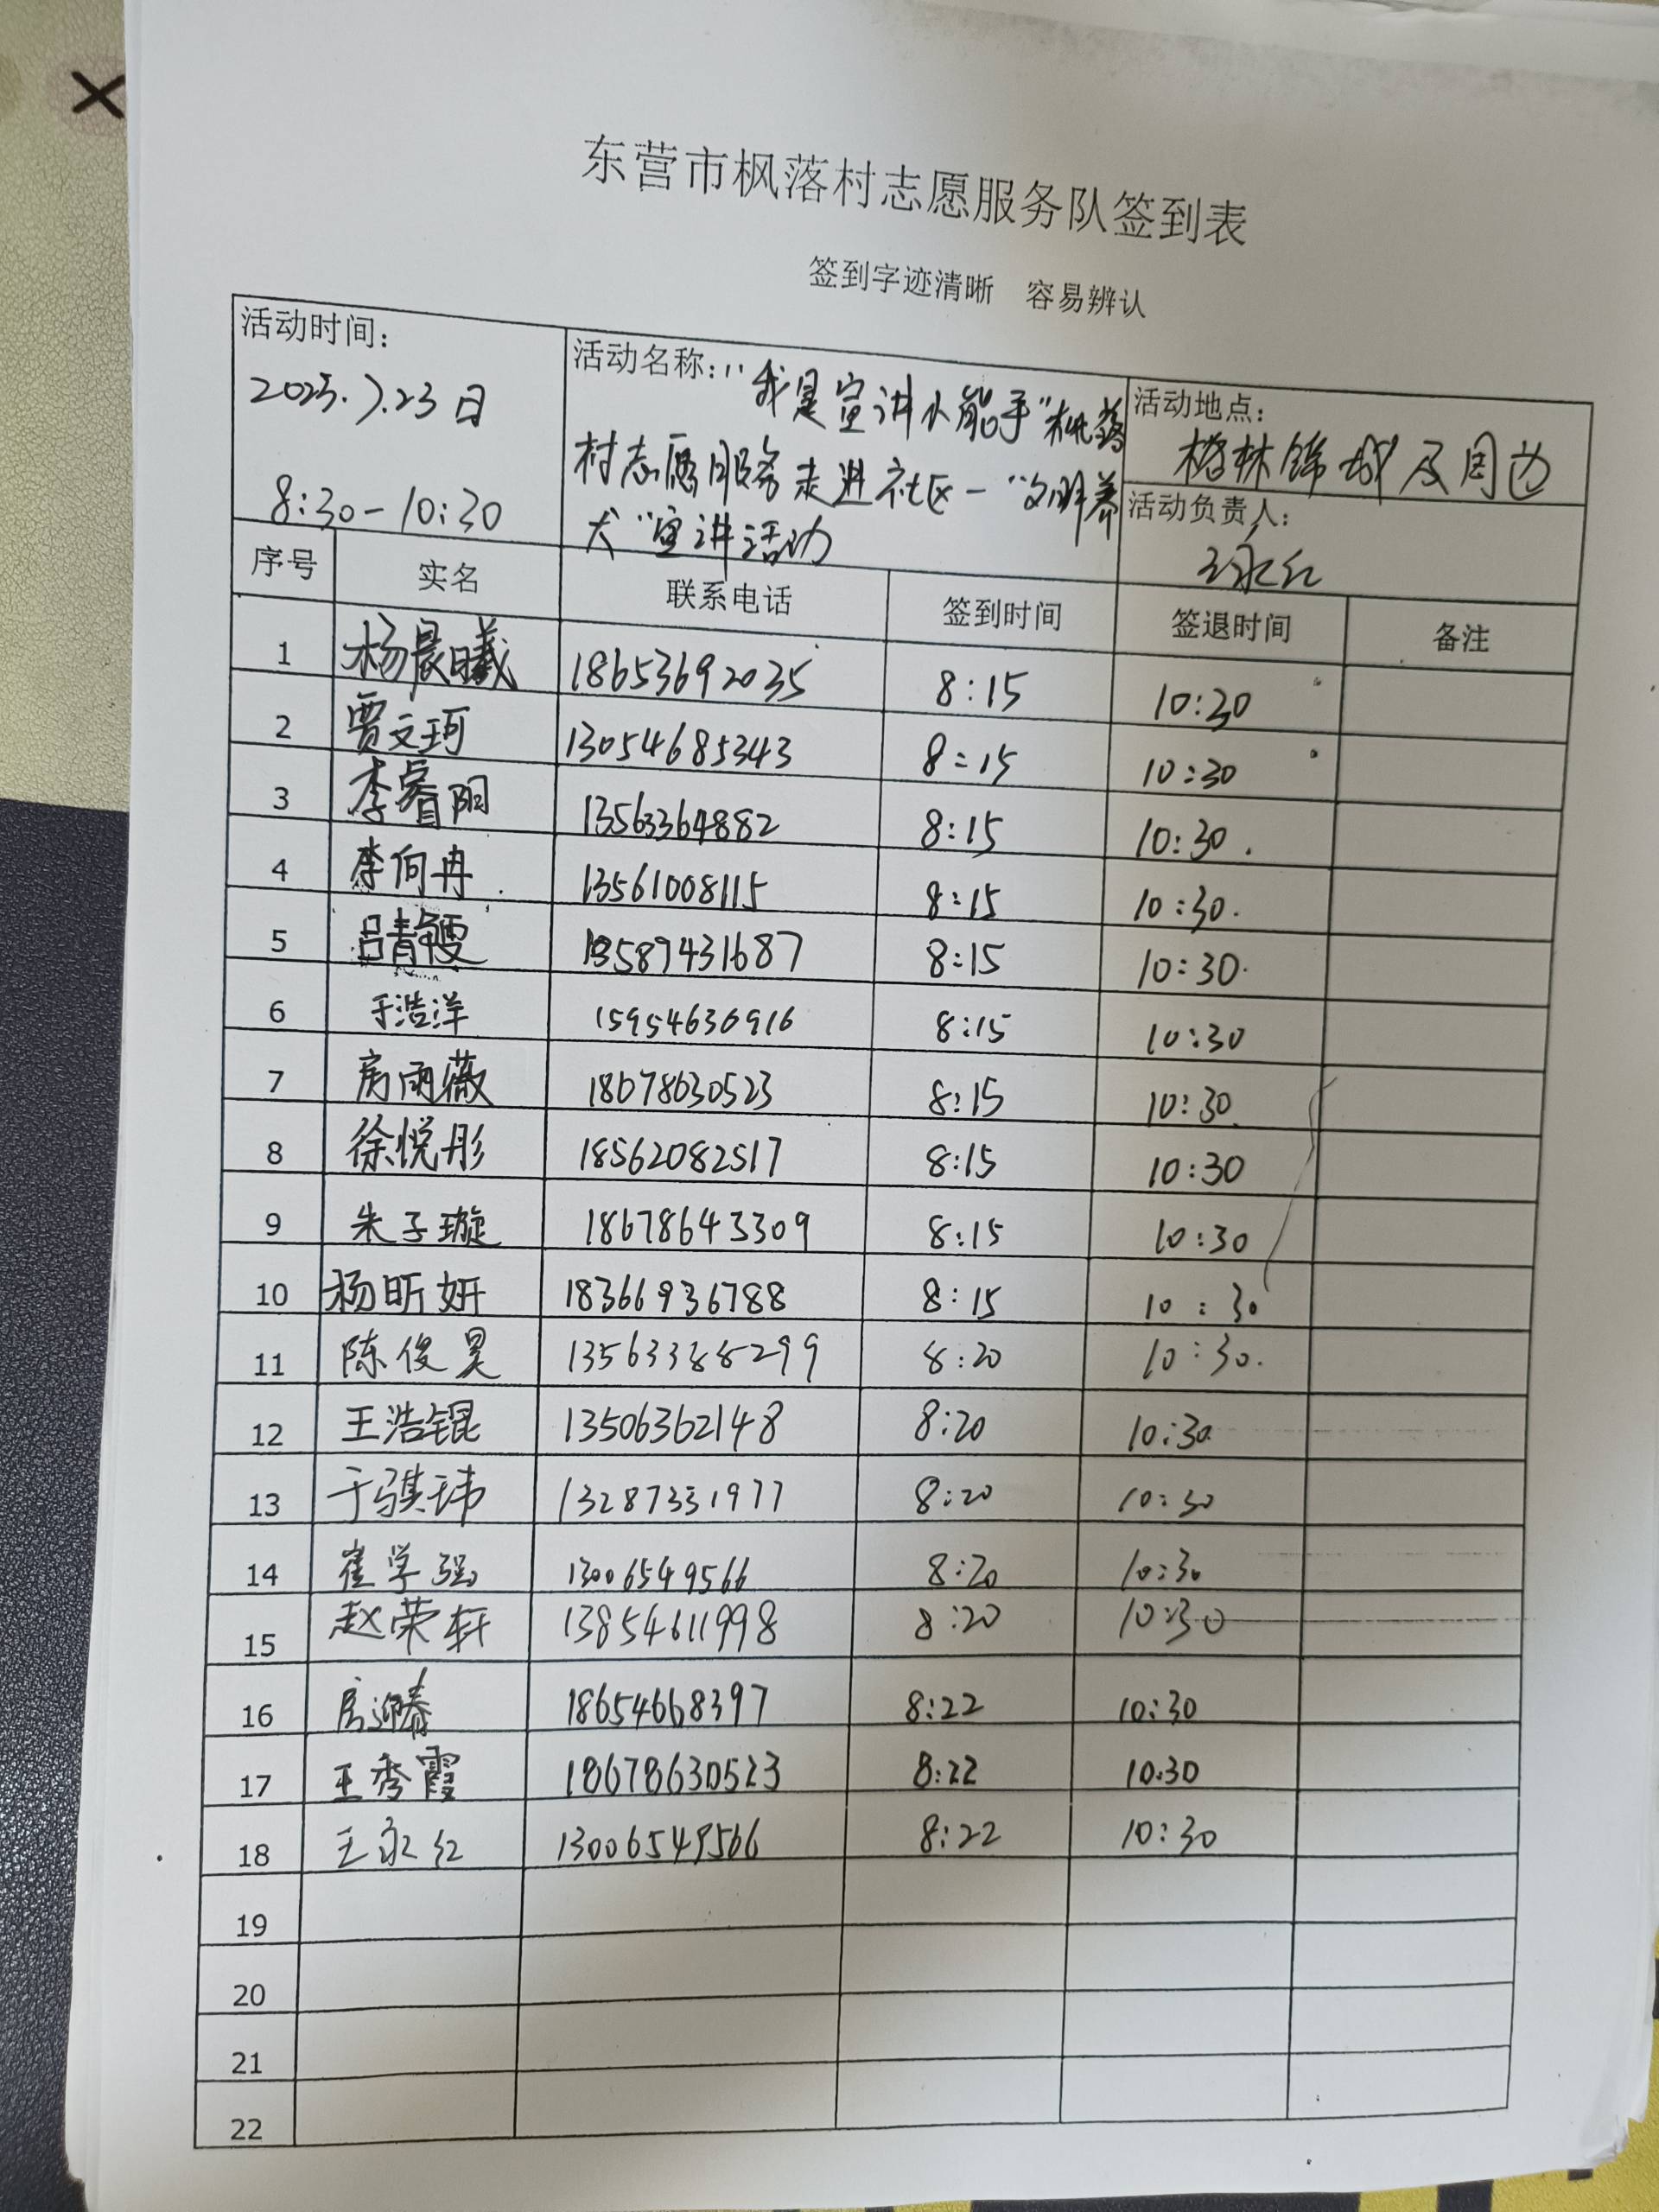 东营市枫落村志愿服务队签到表
签到字迹清晰 容易辨认
活动时间：
2025.7.23日
8:30-10:30
活动名称："我是宣讲小能手"枫落
村志愿服务走进社区-"文明养
犬"宣讲活动
活动地点：
林锦城及周边
活动负责人：
王永红
序号 实名 联系电话 签到时间 签退时间 备注
1 杨晨曦 18653692035 8:15 10:30
2 贾文珂 13054685343 8:15 10:30
3 李睿阳 13563364882 8:15 10:30.
4 李向冉 13561008115 8:15 10:30.
5 吕青 13589431687 8:15 10:30.
6 于浩洋 15954636916 8:15 10:30
7 房雨薇 18678630523 8:15 10:30.
8 徐悦彤 18562082517 8:15 10:30
9 朱子璇 18678643309 8:15 10:30
10 杨昕妍 18366936788 8:15 10:30
11 陈俊昊 13563388299 8:20 10:30.
12 王浩锟 13506362148 8:20 10:30
13 于骐玮 13287331977 8:20 10:30
14 崔学强 13006549566 8:20 10:30
15 赵荣轩 13854611998 8:20 10:30
16 房迎春 18654668397 8:22 10:30
17 王秀霞 18678630523 8:22 10:30
18 王永红 13006549566 8:22 10:30
19
20
21
22